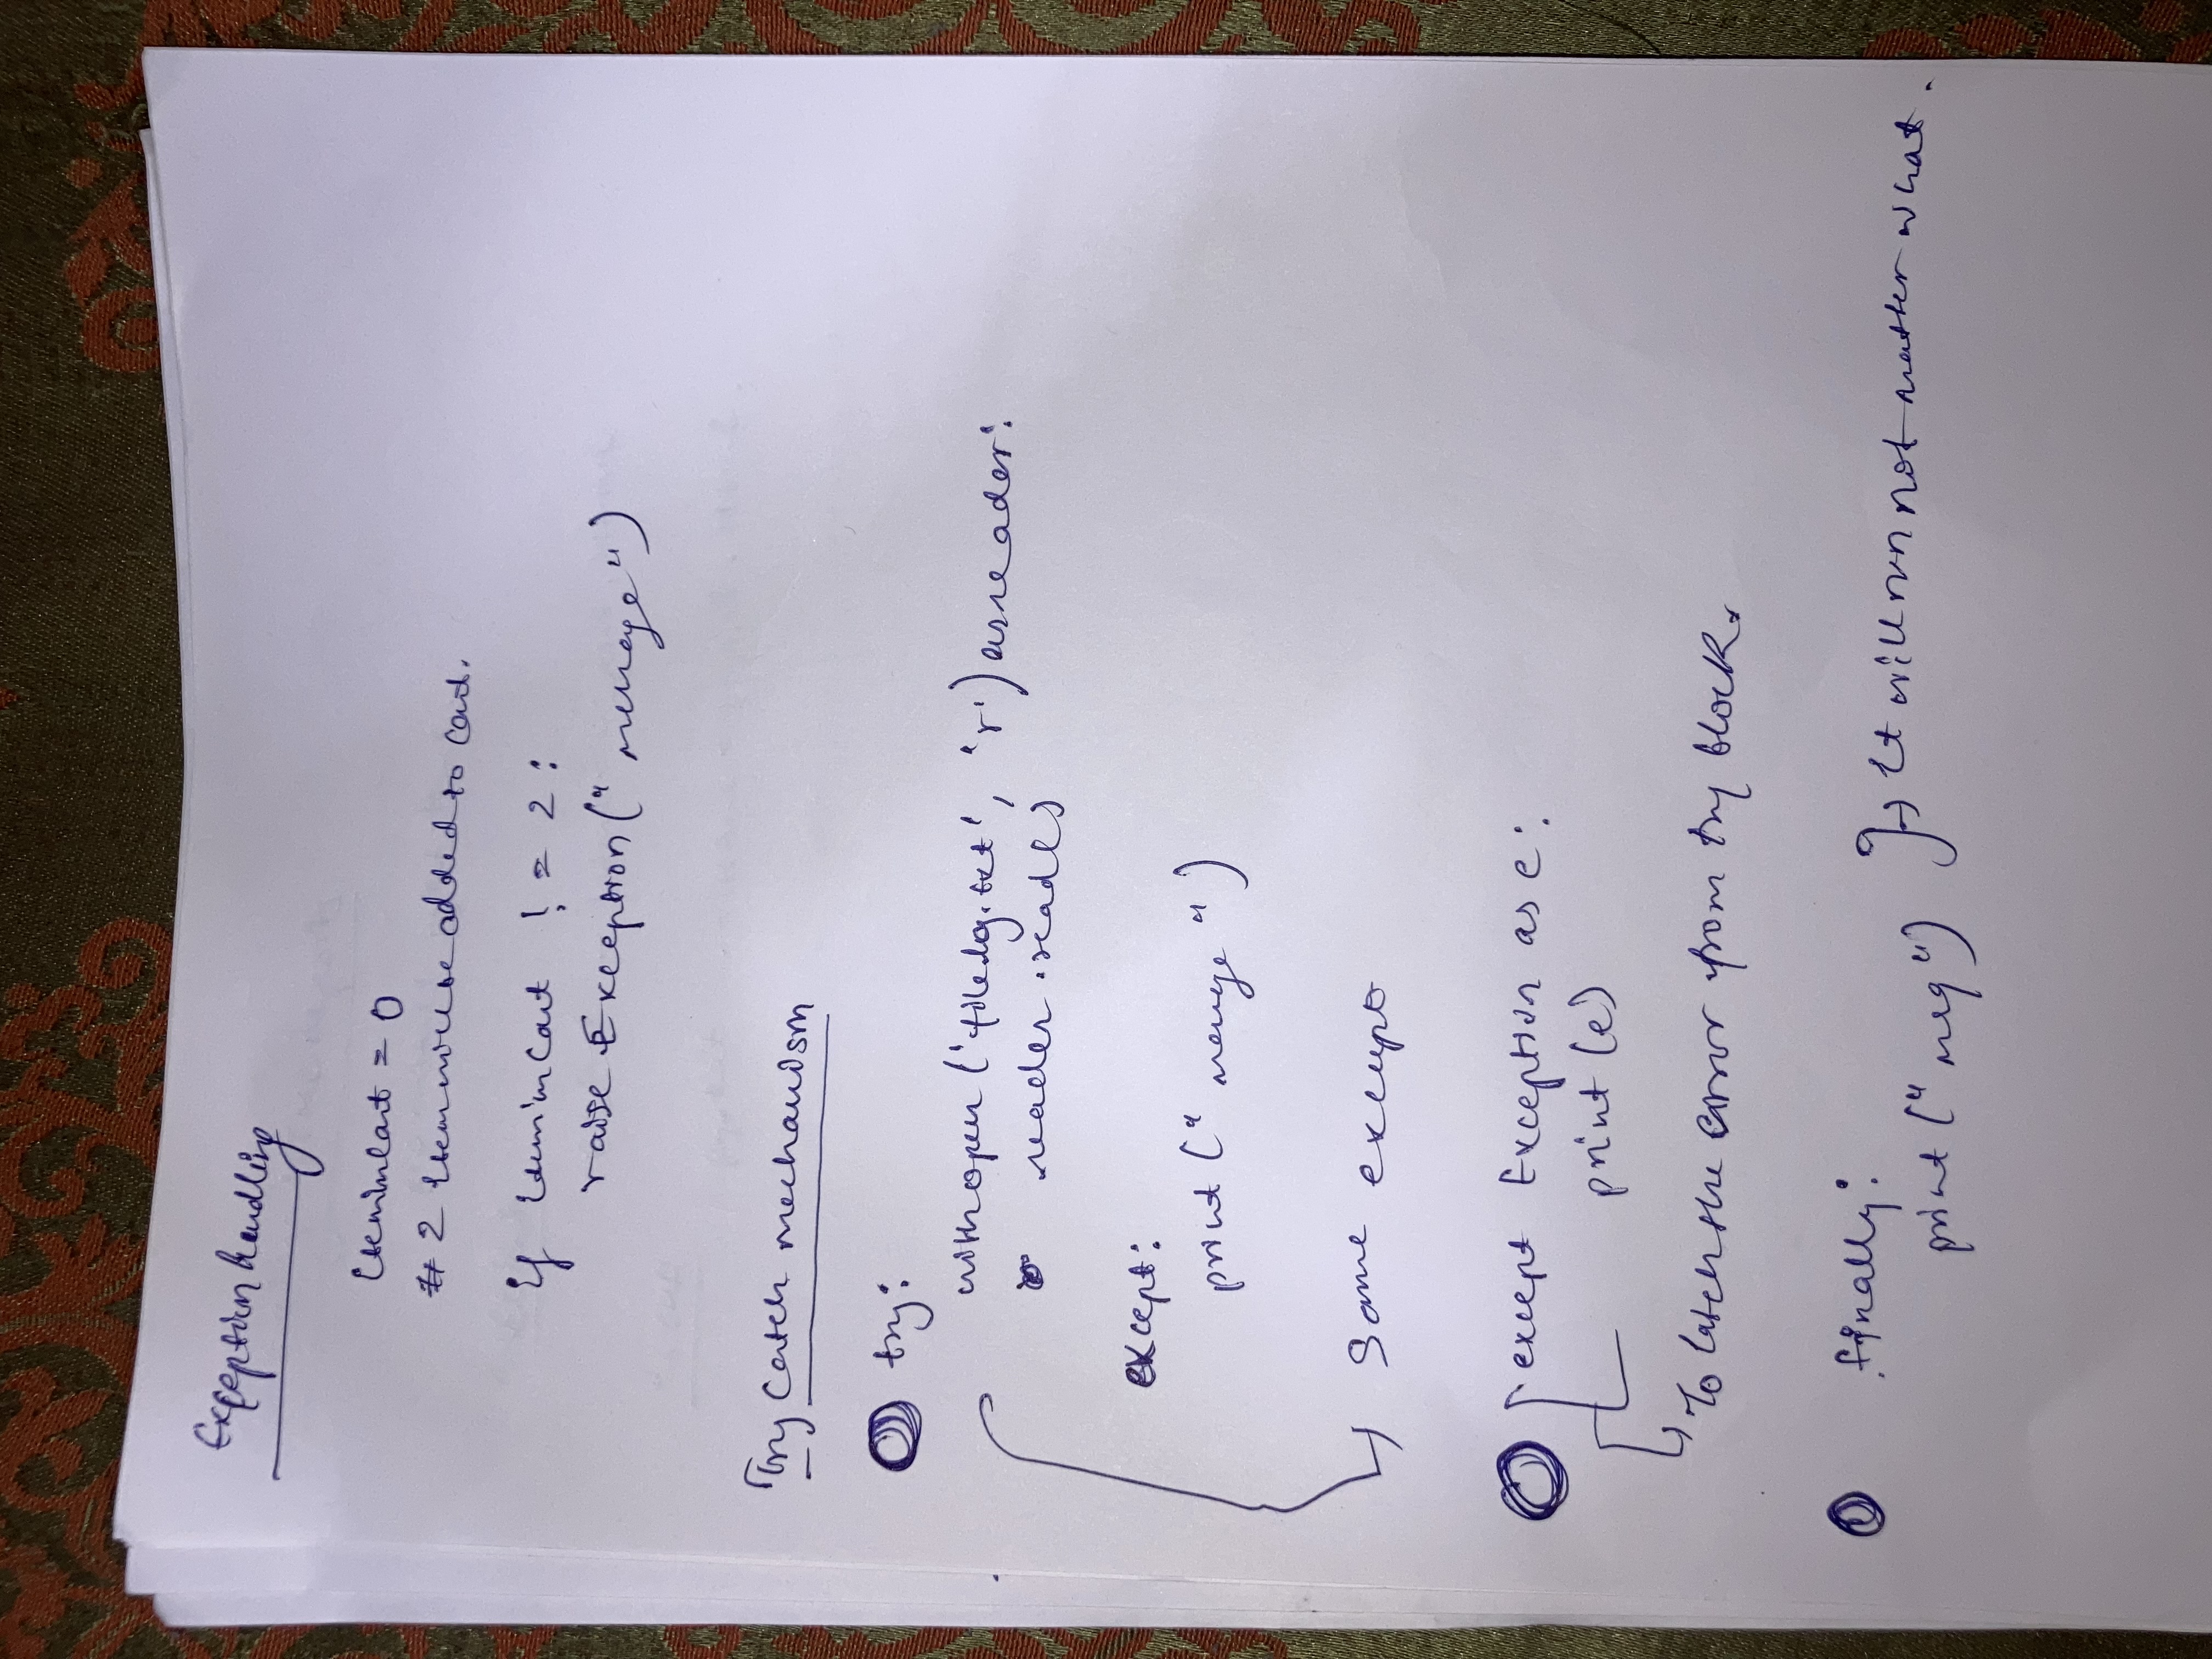 Exception handling
ItemInCart = 0
# 2 Item will be added to cart.
If ItemInCart != 2:
raise Exception("message")
Try Catch mechanism
try:
with open('filelog.txt', 'r') as reader:
reader.read()
except:
print("message")
Same except
except Exception as e:
print(e)
To catch the error from try block.
finally:
print("msg") It will run not matter what.